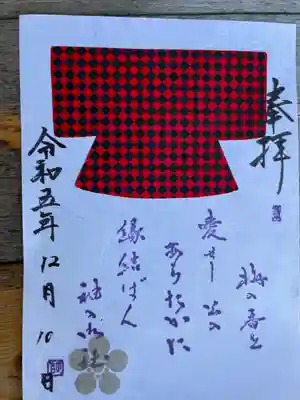 奉拝
梅の香を
愛せし公の
あらたかに
縁結ばん
袖の小社
令和五年12月10日